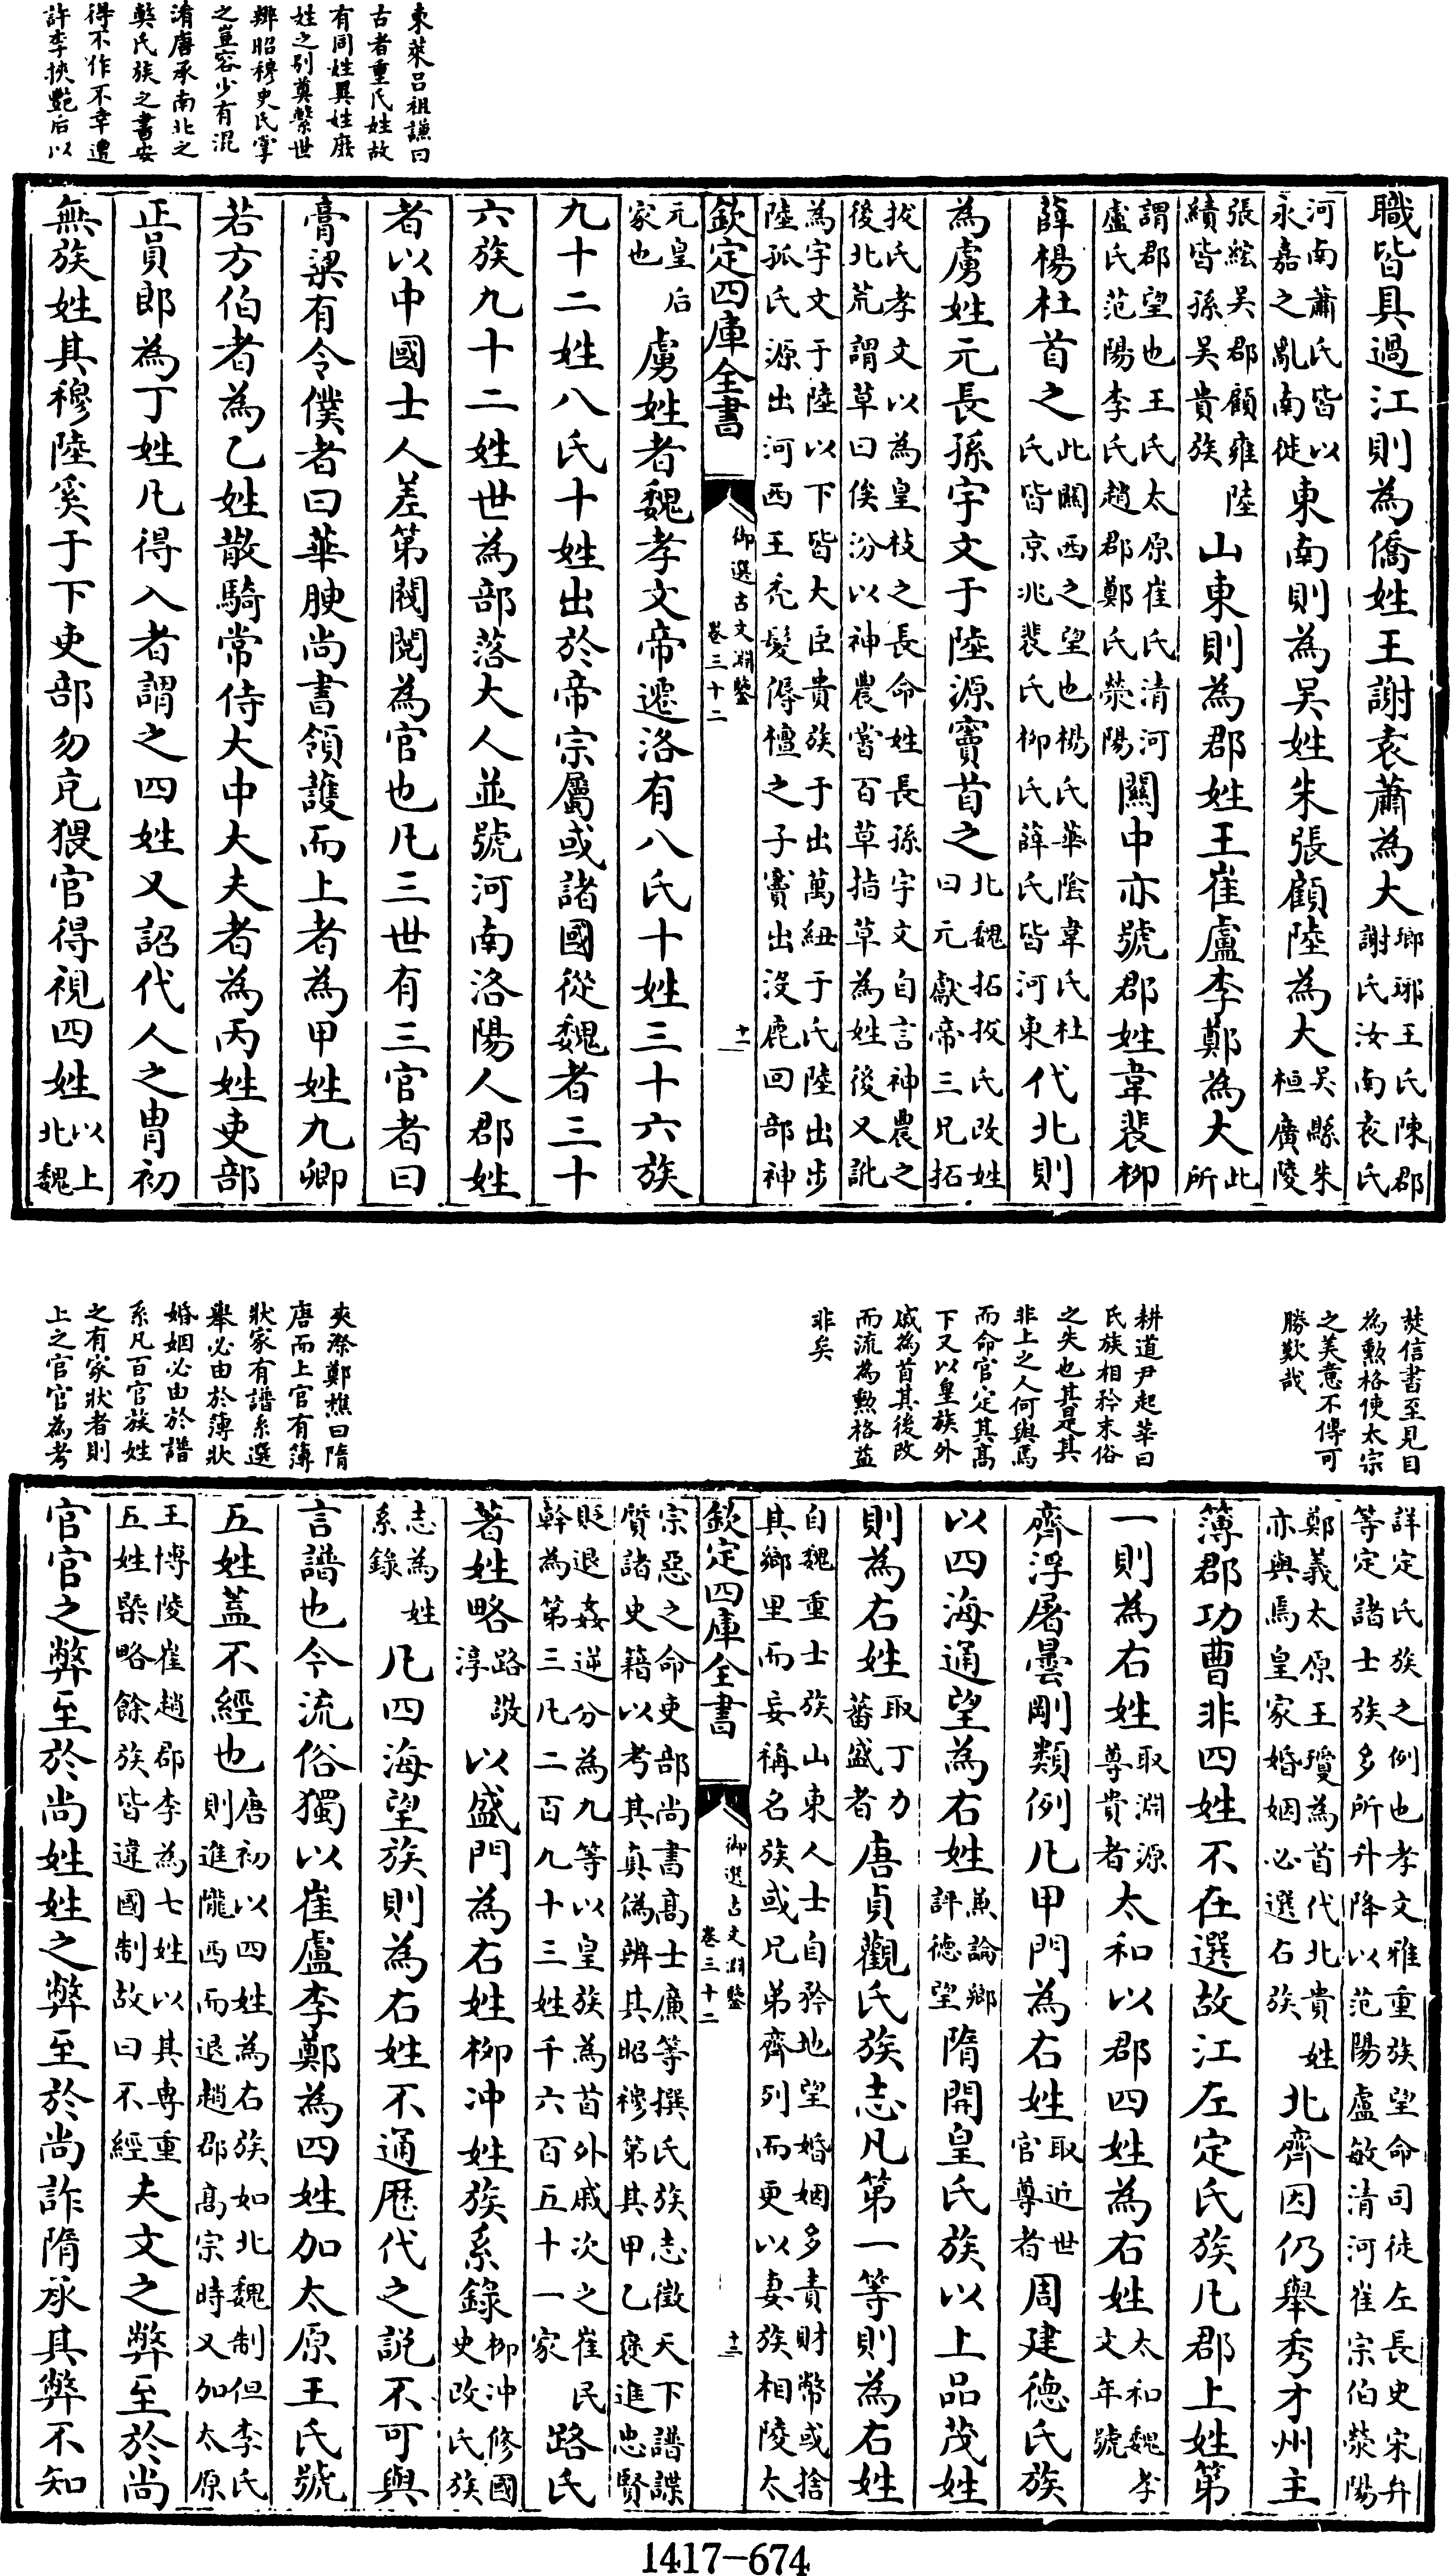 東萊呂祖謙曰
古者重氏姓故
有同姓異姓庶
姓之别奠繫世
辨昭穆史氏掌
之豈容少有混
淆唐承南北之
獘氏族之書安
得不作不幸遭
許李挾艶后以
職皆具過江則為僑姓王謝袁蕭為大瑯琊王氏陳郡謝氏汝南袁氏
河南蕭氏皆以永嘉之亂南徙東南則為吳姓朱張顧陸為大吳縣朱桓廣陵
張紘吳郡顧雍陸績皆孫吳貴族山東則為郡姓王崔盧李鄭為大此所
謂郡望也王氏太原崔氏清河盧氏范陽李氏趙郡鄭氏滎陽關中亦號郡姓韋裴柳
薛楊杜首之此關西之望也楊氏華陰韋氏杜氏皆京兆裴氏柳氏薛氏皆河東代北則
為虜姓元長孫宇文于陸源竇首之北魏拓拔氏改姓曰元獻帝三兄拓
拔氏孝文以為皇枝之長命姓長孫宇文自言神農之後北荒謂草曰俟汾以神農嘗百草指草為姓後又訛
為宇文于陸以下皆大臣貴族于出萬紐于氏陸出步陸孤氏源出河西王禿髮傉檀之子竇出沒鹿回部神
欽定四庫全書
御選古文淵鑒
卷三十二
十一
元皇后家也虜姓者魏孝文帝遷洛有八氏十姓三十六族
九十二姓八氏十姓出於帝宗屬或諸國從魏者三十
六族九十二姓世為部落大人並號河南洛陽人郡姓
者以中國士人差第閥閱為官也凡三世有三官者曰
膏粱有令僕者曰華腴尚書領護而上者為甲姓九卿
若方伯者為乙姓散騎常侍大中大夫者為丙姓吏部
正員郎為丁姓凡得入者謂之四姓又詔代人之胄初
無族姓其穆陸奚于下吏部勿克猥官得視四姓以上北魏
焚信書至見目
為勲格使太宗
之美意不傳可
勝歎哉
耕道尹起莘曰
氏族相矜末俗
之失也其是其
非上之人何與焉
而命官定其髙
下又以皇族外
戚為首其後改
而流為勲格益
非矣
夾漈鄭樵曰隋
唐而上官有簿
狀家有譜系選
舉必由於薄狀
婚姻必由於譜
系凡百官族姓
之有家狀者則
上之官官為考
詳定氏族之例也孝文雅重族望命司徒左長史宋弁等定諸士族多所升降以范陽盧敏清河崔宗伯滎陽
鄭義太原王瓊為首代北貴姓亦與焉皇家婚姻必選右族北齊因仍舉秀才州主
簿郡功曹非四姓不在選故江左定氏族凡郡上姓第
一則為右姓取淵源尊貴者太和以郡四姓為右姓太和魏孝文年號
齊浮屠曇剛類例凡甲門為右姓取近世官尊者周建德氏族
以四海通望為右姓兼論鄉評德望隋開皇氏族以上品茂姓
則為右姓取丁力蕃盛者唐貞觀氏族志凡第一等則為右姓
自魏重士族山東人士自矜地望婚姻多責財幣或捨其鄉里而妄稱名族或兄弟齊列而更以妻族相陵太
欽定四庫全書
御選古文淵鑒
卷三十二
十二
宗惡之命吏部尚書髙士㢘等撰氏族志徵天下譜諜質諸史籍以考其真偽辨其昭穆第其甲乙褒進忠賢
貶退姦逆分為九等以皇族為首外戚次之崔民幹為第三凡二百九十三姓千六百五十一家路氏
著姓略路敬淳以盛門為右姓柳冲姓族系錄柳冲修國史改氏族
志為姓系錄凡四海望族則為右姓不通歷代之說不可與
言譜也今流俗獨以崔盧李鄭為四姓加太原王氏號
五姓蓋不經也唐初以四姓為右族如北魏制但李氏則進隴西而退趙郡高宗時又加太原
王博陵崔趙郡李為七姓以其専重五姓槩略餘族皆違國制故曰不經夫文之弊至於尚
官官之弊至於尚姓姓之弊至於尚詐隋承其弊不知
1417-674